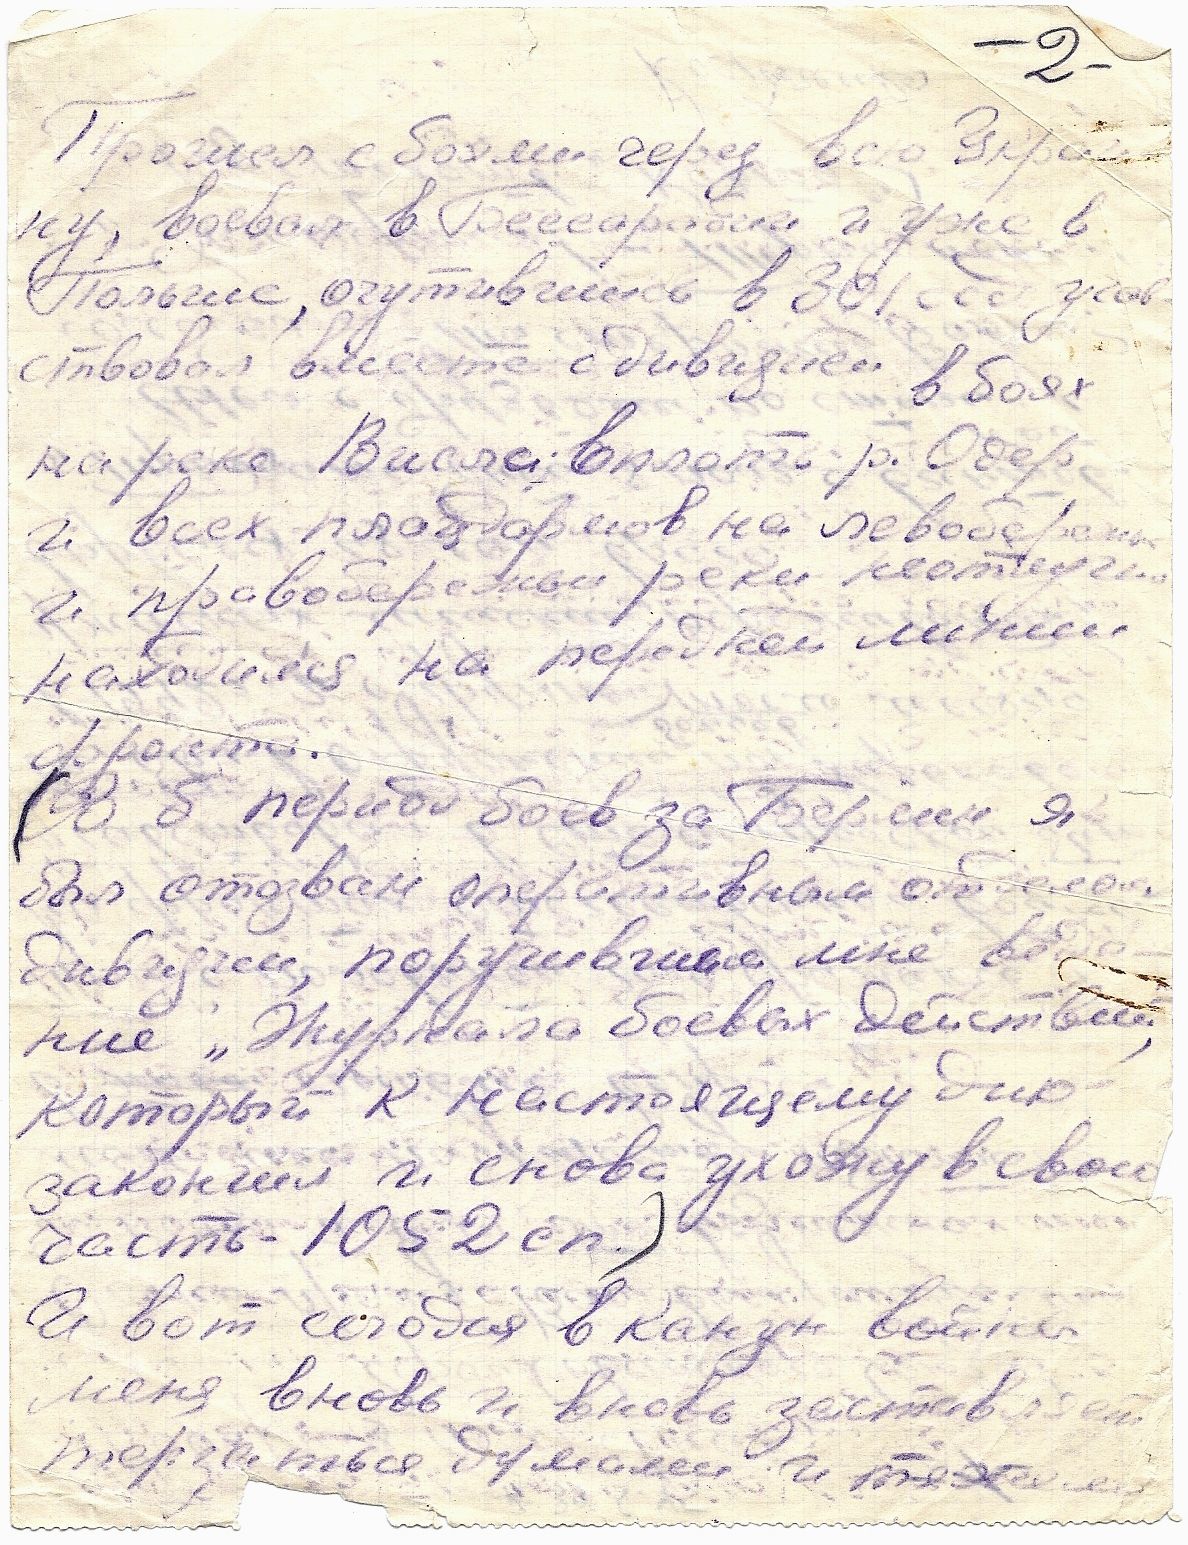 -2-
Прошел с боями через всю Украи
ну, воевал в Бессарабии и уже в
Польше, очутившись в 301 сд учав
ствовал вместе с дивизией в боях
на реке Висла вплоть р. Одер
и всех плацдармов на левобережьи
и правобережьи реки неотлучно
находился на передней линии
фронта.
(В период боев за Берлин я
был отозван оперативным отделом
дивизии, поручившем мне веде-
ние „Журнала боевых действий,
который к настоящему дню
закончил и снова ухожу в свою
часть - 1052 сп.)
И вот сегодня в канун войны
меня вновь и вновь заставляет
терзаться думами и